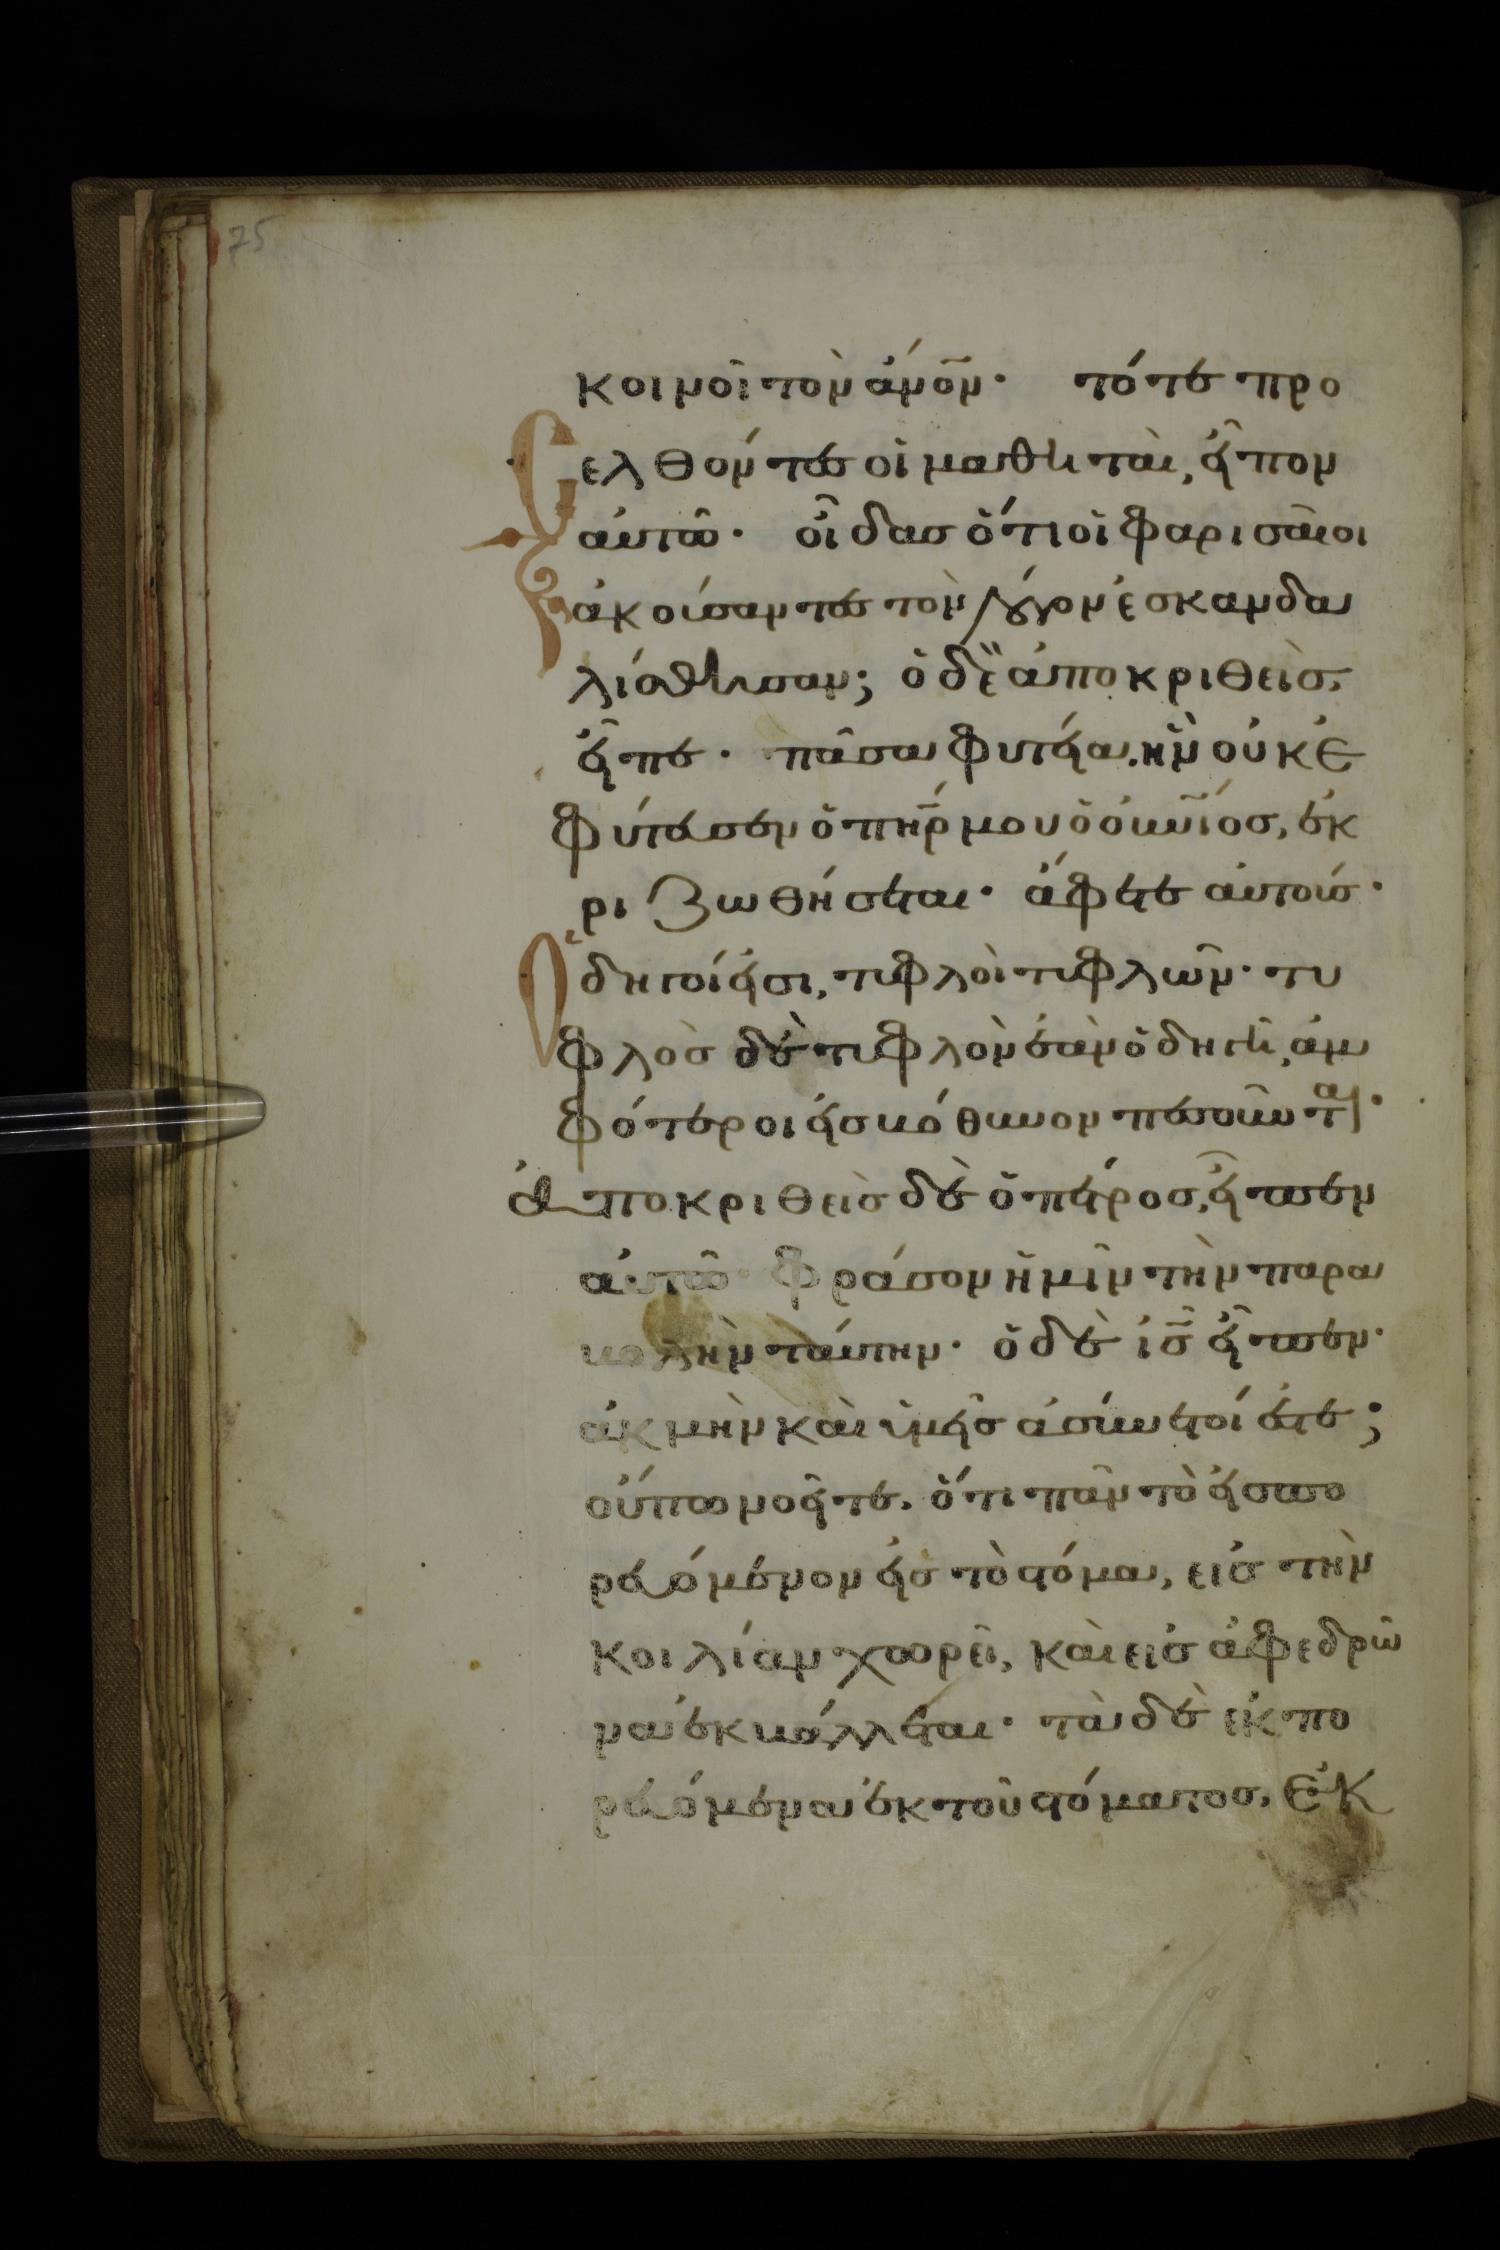 75
κοινοῖ τὸν ἄν̅ο̅ν· τότε προ
σελθόντες οἱ μαθηταὶ, εἶπον
αὐτῶ· οἶδας ὅτι οἱ φαρισαῖοι
ἀκούσαντες τὸν λόγον ἐσκανδα
λίσθησαν; ὁ δὲ ἀποκριθεὶς,
εἶπε· πᾶσα φυτεία, ἣν οὐκ ἐ
φύτευσεν ὁ π̅η̅ρ μου ὁ ο̅υ̅ν̅ιος, ἐκ
ριζωθήσεται· ἄφετε αὐτούς·
ὁδηγοί εἰσι, τυφλοὶ τυφλῶν· τυ
φλὸς δὲ τυφλὸν ἐὰν ὁδηγῆ, ἀμ
φότεροι εἰς βόθυνον πεσοῦνται·
ἀποκριθεὶς δὲ ὁ πέτρος, εἶπεν
αὐτῶ· φράσον ἡμῖν τὴν παρα
βολὴν ταύτην· ὁ δὲ ι̅ς̅ εἶπεν·
ἀκμὴν καὶ ὑμεῖς ἀσύνετοί ἐστε;
οὔπω νοεῖτε, ὅτι πᾶν τὸ εἰσπο
ρευόμενον εἰς τὸ στόμα, εἰς τὴν
κοιλίαν χωρεῖ, καὶ εἰς ἀφεδρῶ
να ἐκβάλλεται· τὰ δὲ ἐκπο
ρευόμενα ἐκ τοῦ στόματος, ἐκ